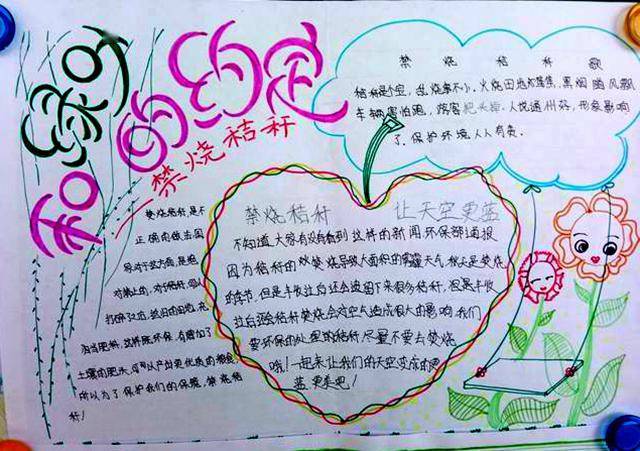 和绿色的约定
—禁烧秸秆
禁烧秸秆歌
秸秆是个宝，乱烧害不小。火烧田地如焦焦，黑烟随风飘
车辆害怕跑，路客把头掉，人说通州好，形象影响
了。保护环境人人有责。
禁烧秸秆是不
正确的做法国
家对于这方面，是绝
对禁止的，对于秸秆，可以
打碎了之后，放到田地里，花
沟当肥料，这样既环保，有增加了
土壤的肥头，可以产出更优质的粮食
所以为了保护我们的环境，禁烧秸
秆！
禁烧秸秆 让天空更蓝
不知道大家有没有看到这样的新闻环保部通报
因为秸秆的焚烧导致大面积的雾霾天气，秋天是焚烧
的季节，但是丰收过后还会遗留下来很多秸秆，但是丰收
过后的秸秆焚烧会对空气造成很大的影响，我们
要环保的处理的秸秆尽量不要去焚烧
哦！一起来让我们的天空变成的更
蓝 更美吧！